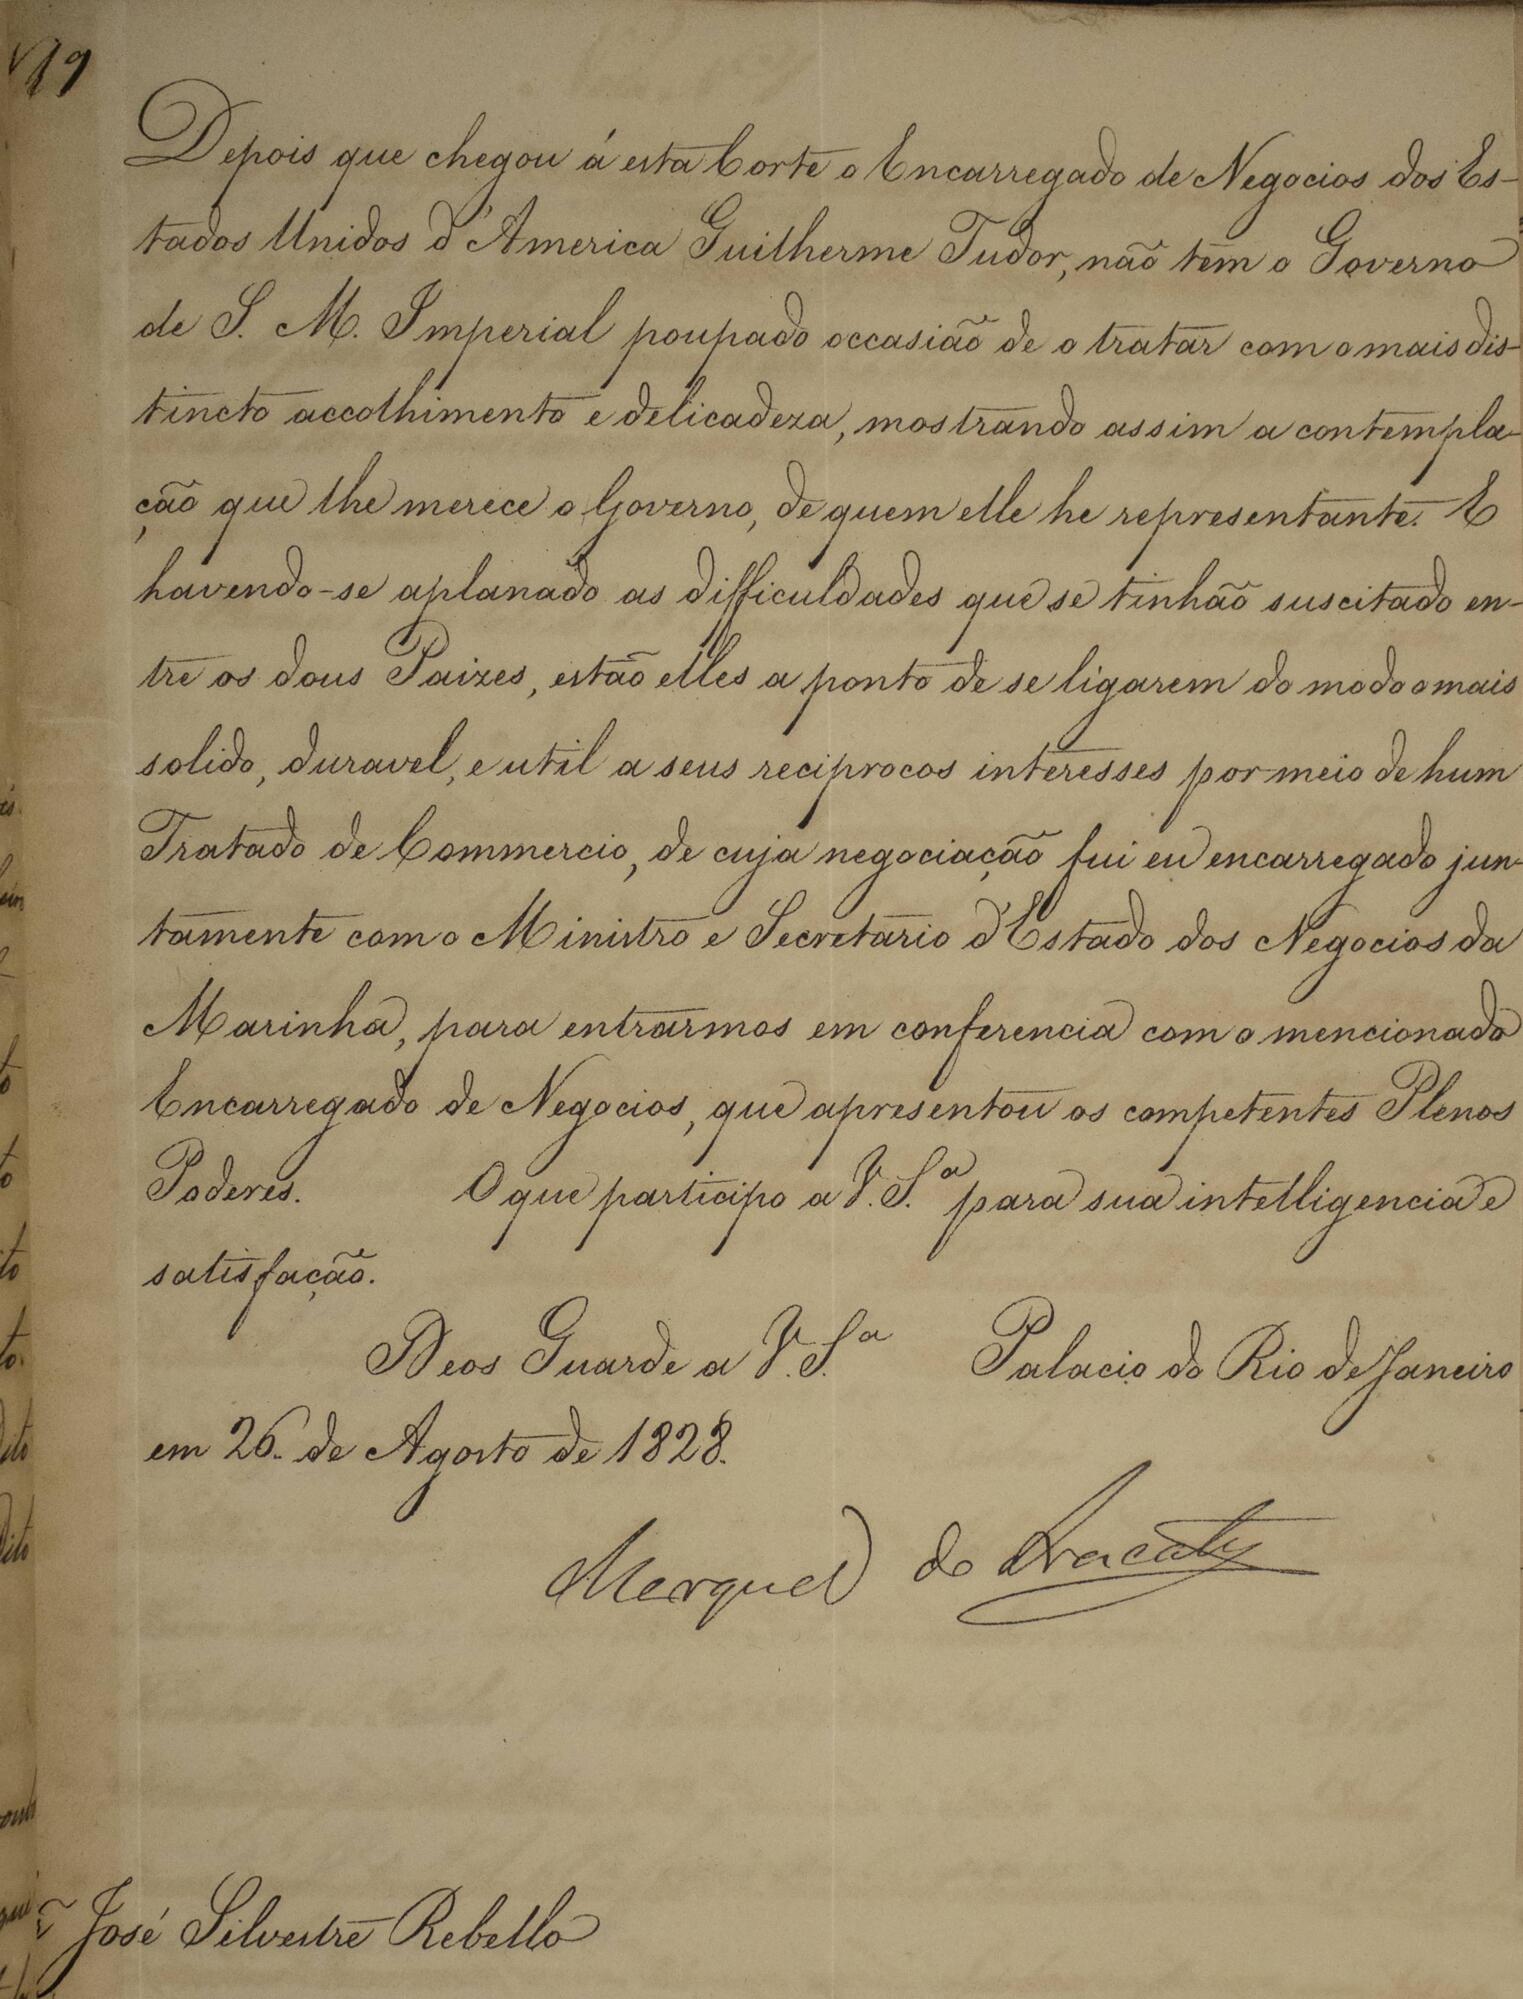 19
Depois que chegou á esta Corte o Encarregado de Negocios dos Es-
tados Unidos d'America Guilherme Tudor, não tem o Governo
de S. M. Imperial poupado occasião de o tratar com o mais dis-
tincto accolhimento e delicadeza, mostrando assim a contempla-
ção que lhe merece o Governo, de quem elle he representante. E
havendo-se aplanado as difficuldades que se tinhão suscitado en-
tre os dous Paizes, estão elles a ponto de se ligarem do modo o mais
solido, duravel, e util a seus reciprocos interesses por meio de hum
Tratado de Commercio, de cuja negociação fui eu encarregado jun-
tamente com o Ministro e Secretario d'Estado dos Negocios da
Marinha, para entrarmos em conferencia com o mencionado
Encarregado de Negocios, que apresentou os competentes Plenos
Poderes. O que participo a V. S.ª para sua intelligencia e
satisfação.
Deos Guarde a V. S.ª Palacio do Rio de Janeiro
em 26. de Agosto de 1828.
Marquez do Aracaty
José Silvestre Rebello